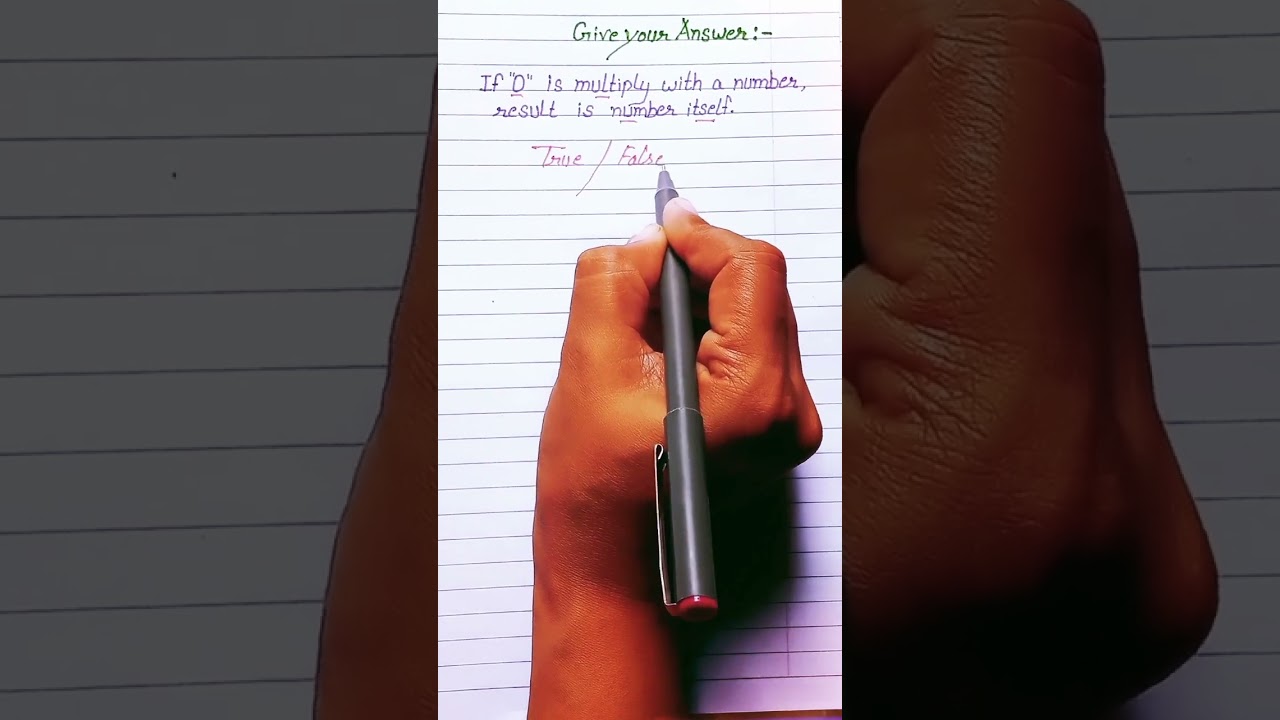 Give your Answer:-
If "0" is multiply with a number,
result is number itself.
True / False